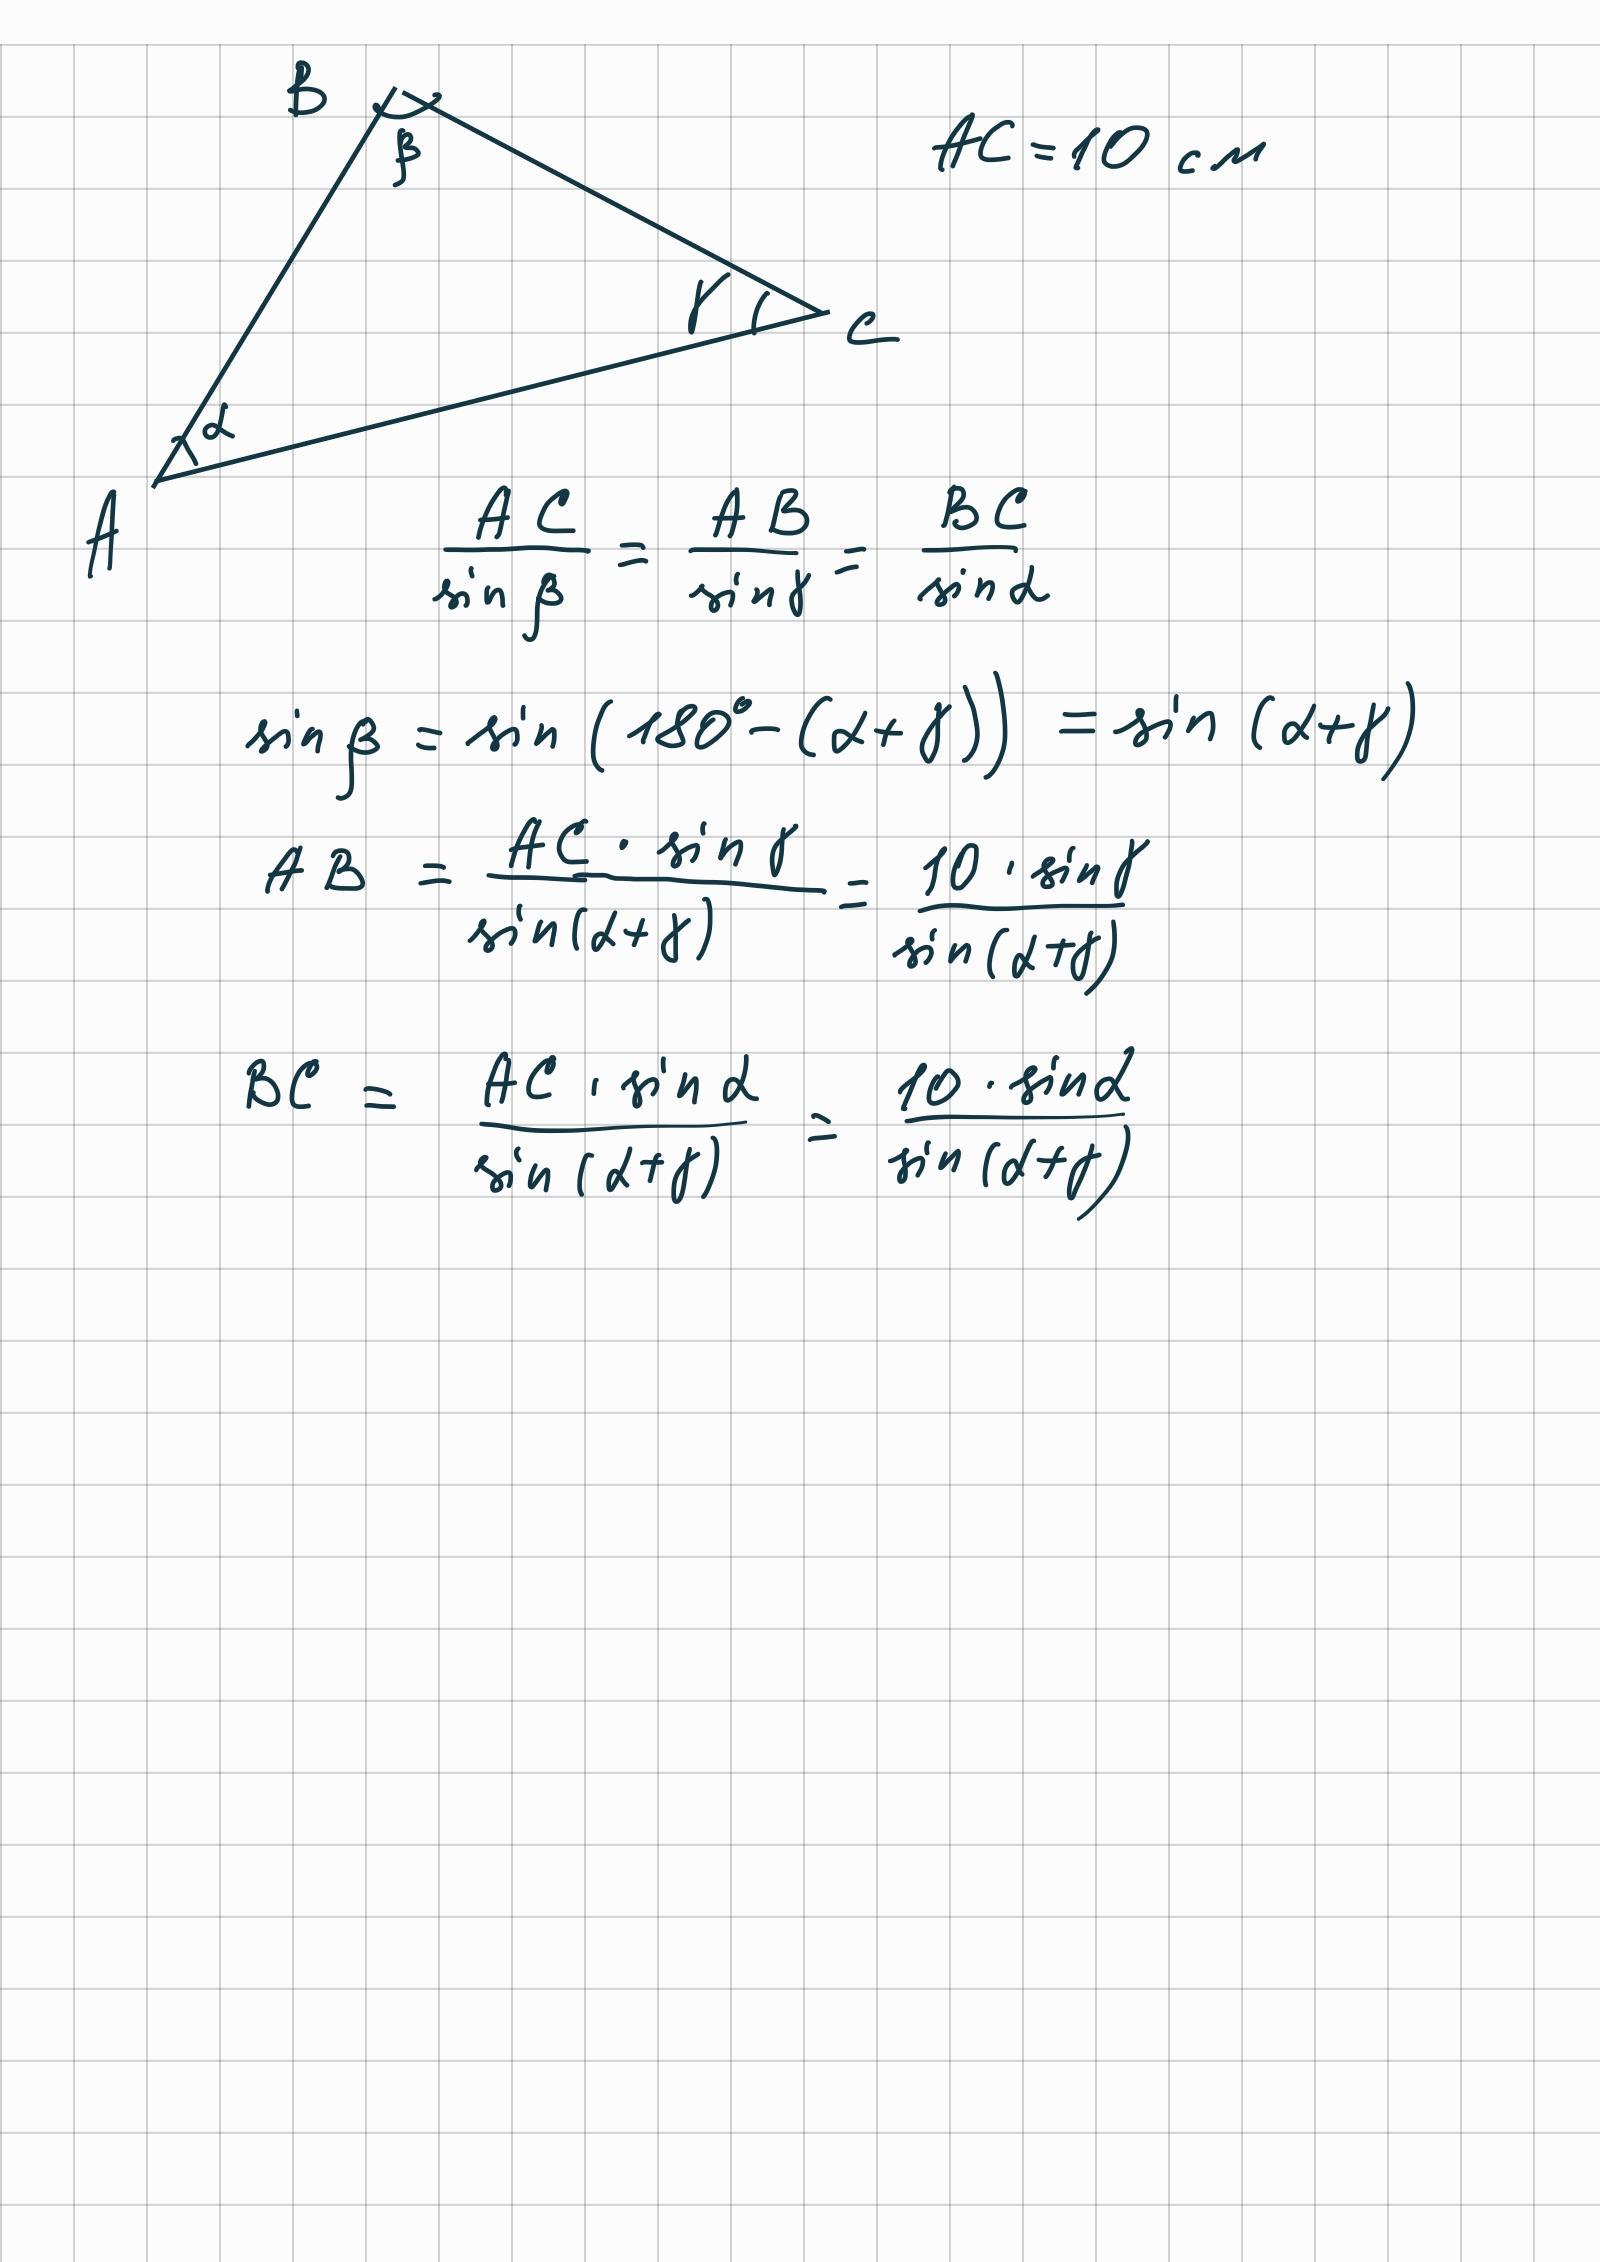 B
β
AC = 10 см
γ
C
α
A
AC/sin β = AB/sin γ = BC/sin α
sin β = sin (180° - (α+γ)) = sin (α+γ)
AB = AC · sin γ/sin(α+γ) = 10 · sin γ/sin(α+γ)
BC = AC · sin α/sin(α+γ) = 10 · sin α/sin(α+γ)